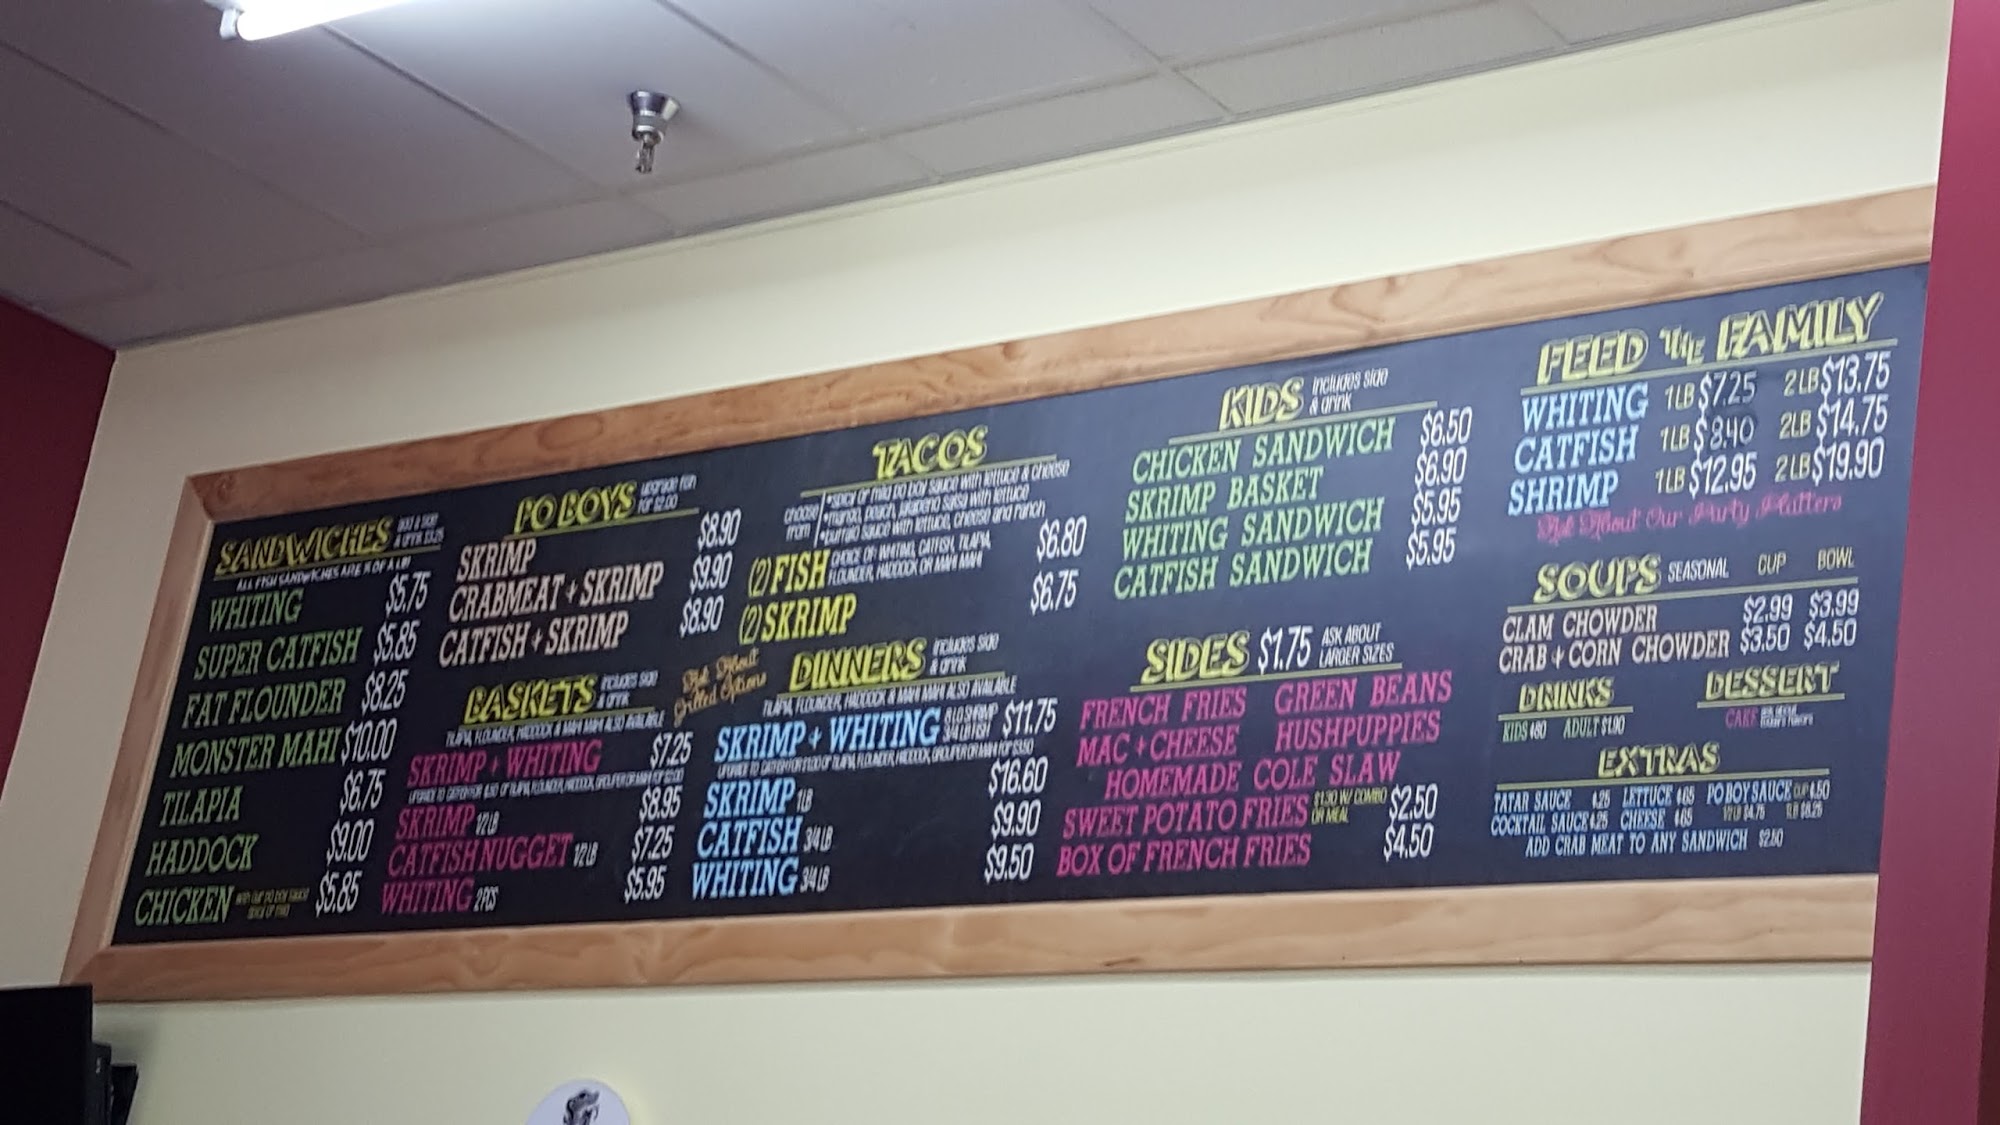 SANDWICHES
ALL FISH SANDWICHES ARE
WHITING $5.75
SUPER CATFISH $5.85
FAT FLOUNDER $8.25
MONSTER MAHI $10.00
TILAPIA $6.75
HADDOCK $9.00
CHICKEN $5.85
PO BOYS
SKRIMP $8.90
CRABMEAT + SKRIMP $9.90
CATFISH + SKRIMP $8.90
BASKETS includes side & drink
TILAPIA, FLOUNDER, HADDOCK & MAHI MAHI ALSO AVAILABLE
SKRIMP + WHITING $7.25
SKRIMP 1/2 LB $8.95
CATFISH NUGGET 1/2 LB $7.25
WHITING 2 PCS $5.95
Ask About Grilled Options
TACOS
choose from
•spicy or mild po boy sauce with lettuce & cheese
•mango, peach, jalapeno salsa with lettuce
•buffalo sauce with lettuce, cheese and ranch
(2) FISH CHOICE OF: WHITING, CATFISH, TILAPIA, FLOUNDER, HADDOCK OR MAHI MAHI $6.80
(2) SKRIMP $6.75
DINNERS includes side & drink
TILAPIA, FLOUNDER, HADDOCK & MAHI MAHI ALSO AVAILABLE
SKRIMP + WHITING $11.75
SKRIMP 1LB $16.60
CATFISH 3/4 LB $9.90
WHITING 3/4 LB $9.50
KIDS includes side & drink
CHICKEN SANDWICH $6.50
SKRIMP BASKET $6.90
WHITING SANDWICH $5.95
CATFISH SANDWICH $5.95
SIDES $1.75 ASK ABOUT LARGER SIZES
FRENCH FRIES GREEN BEANS
MAC + CHEESE HUSHPUPPIES
HOMEMADE COLE SLAW
SWEET POTATO FRIES $1.30 W/ COMBO OR MEAL $2.50
BOX OF FRENCH FRIES $4.50
FEED THE FAMILY
WHITING 1LB $7.25 2LB $13.75
CATFISH 1LB $8.40 2LB $14.75
SHRIMP 1LB $12.95 2LB $19.90
Ask About Our Party Platters
SOUPS SEASONAL CUP BOWL
CLAM CHOWDER $2.99 $3.99
CRAB + CORN CHOWDER $3.50 $4.50
DRINKS
KIDS ADULT $1.90
DESSERT
CAKE
EXTRAS
TATAR SAUCE LETTUCE PO BOY SAUCE
COCKTAIL SAUCE CHEESE
ADD CRAB MEAT TO ANY SANDWICH $2.50